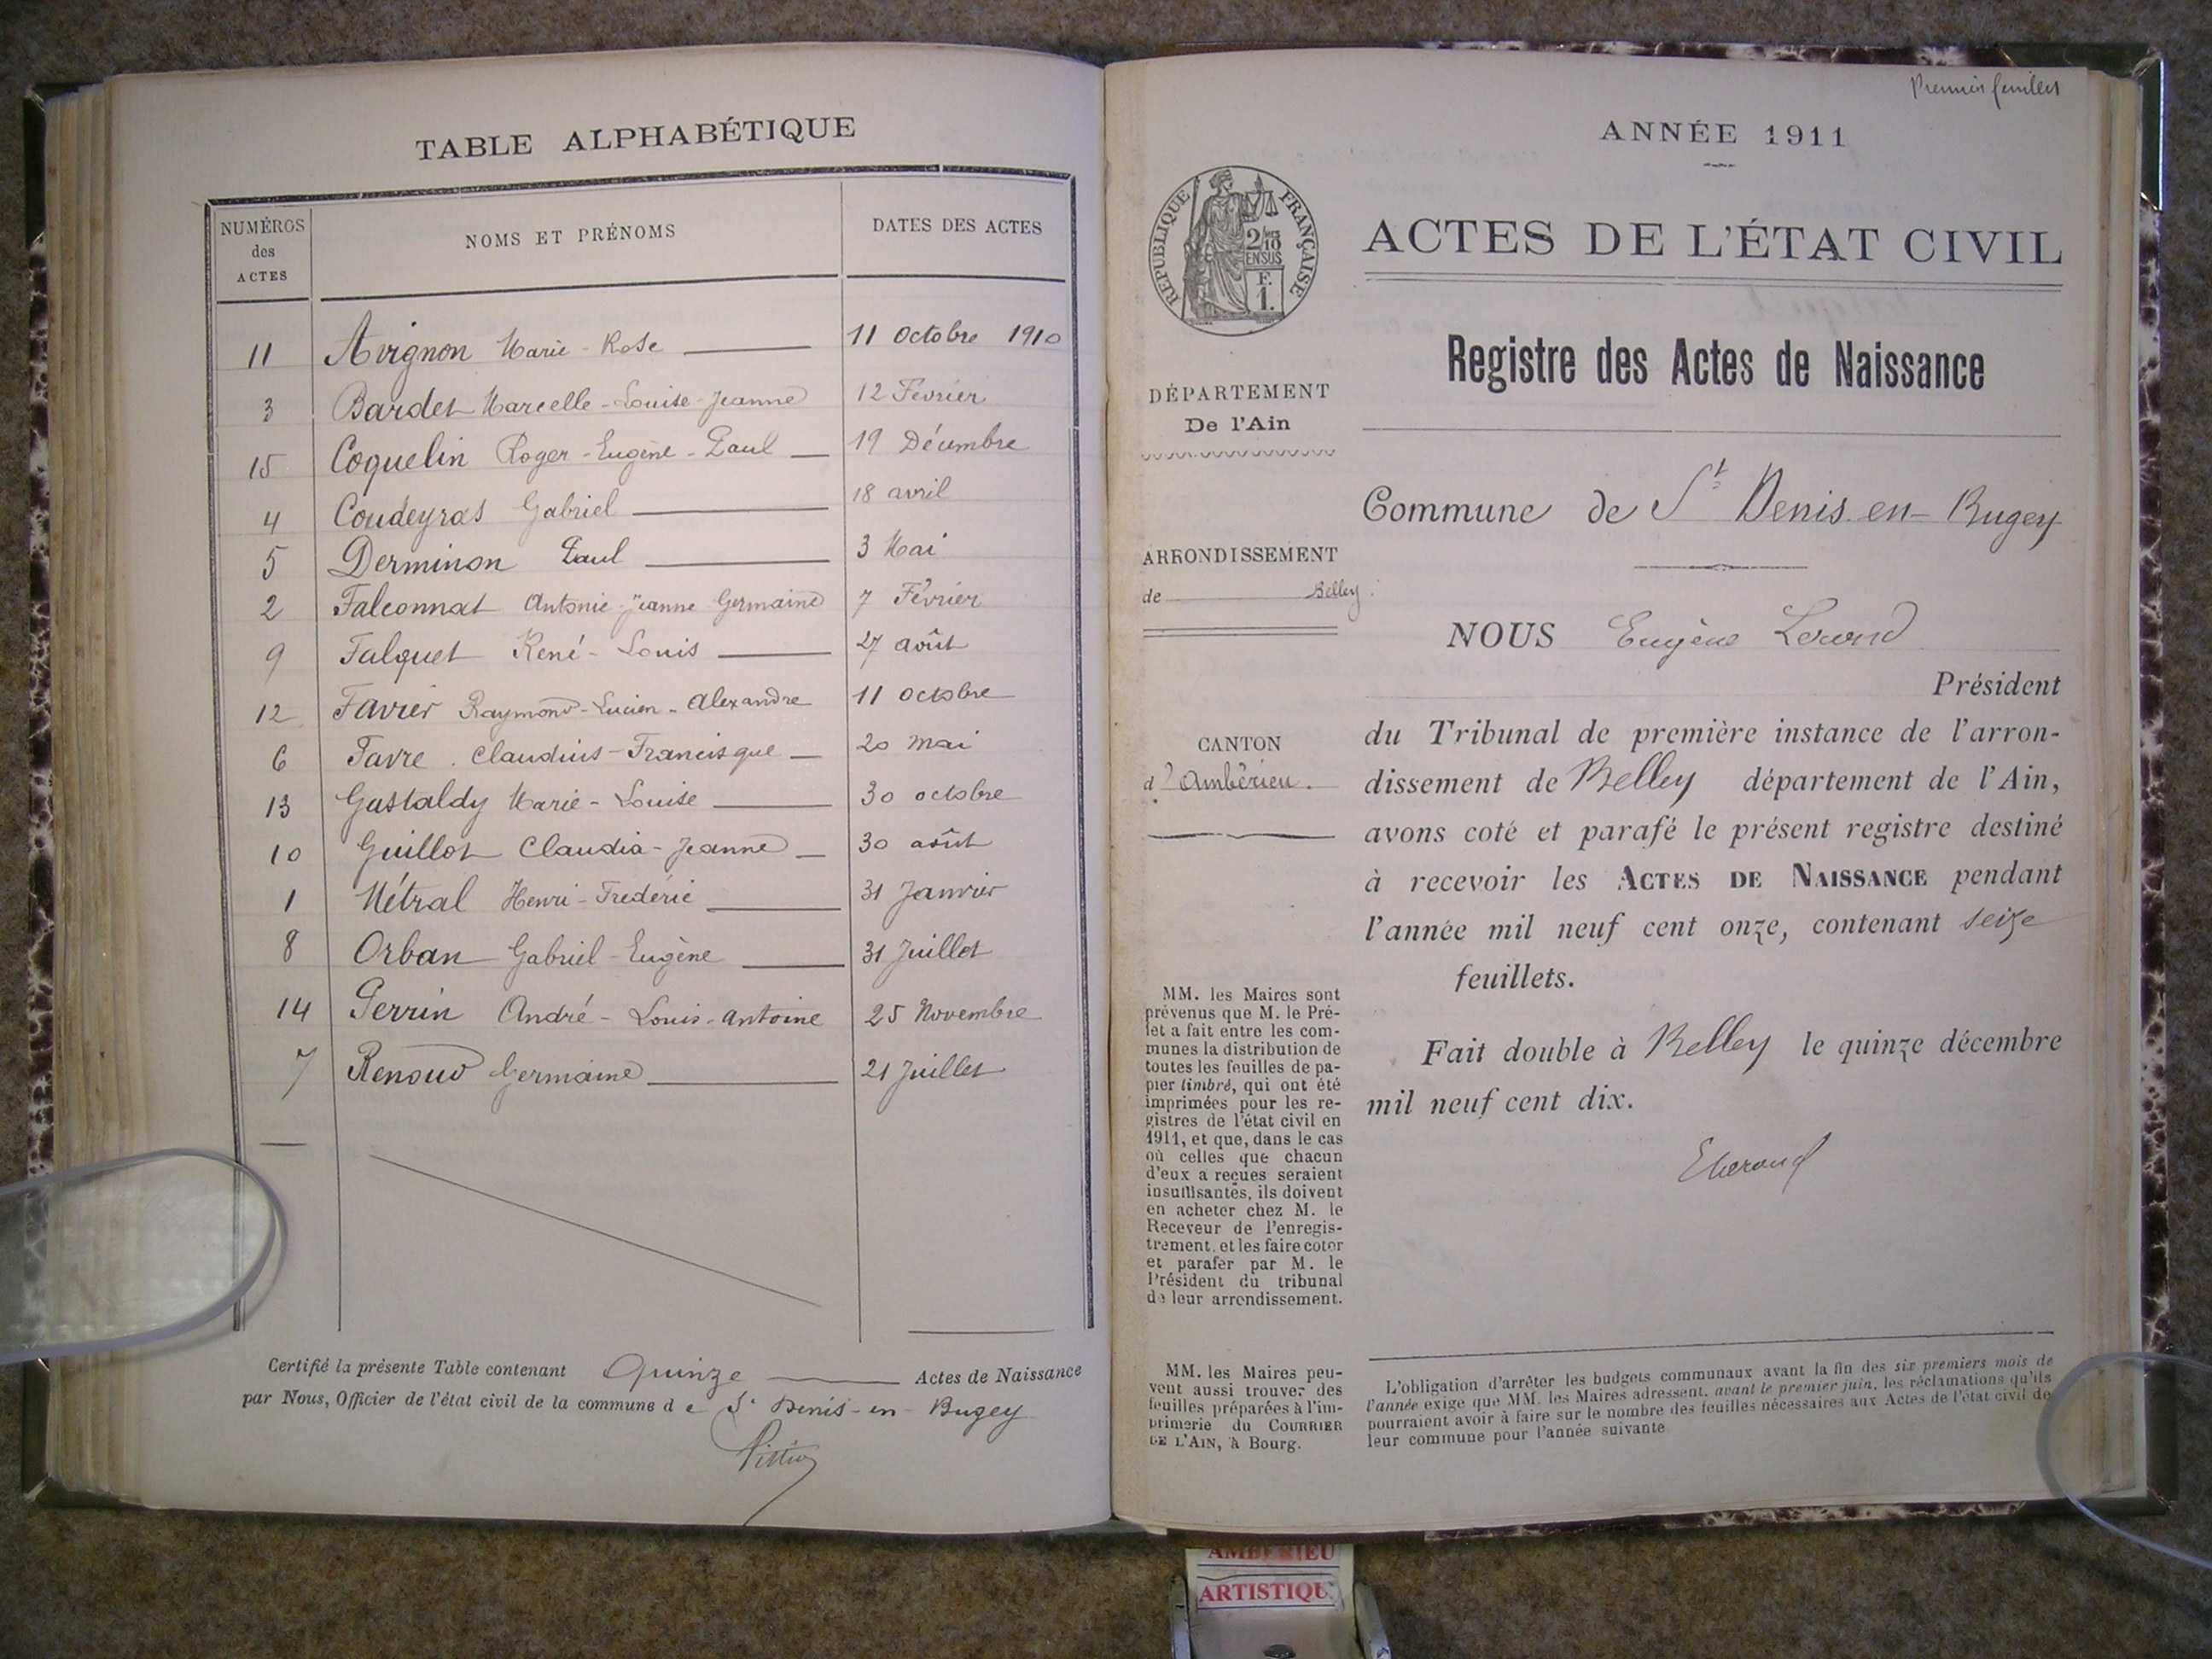 TABLE ALPHABÉTIQUE
NUMÉROS
des
ACTES
NOMS ET PRÉNOMS
DATES DES ACTES
11 Avignon Marie-Rose 11 Octobre 1910
3 Bardet Marcelle-Louise-Jeanne 12 Février
15 Coquelin Roger-Eugène-Paul 19 Décembre
4 Coudeyras Gabriel 18 avril
5 Derminon Paul 3 Mai
2 Falconnat Antonie-Jeanne Germaine 7 Février
9 Falquet René-Louis 27 août
12 Favier Raymond-Lucien-Alexandre 11 octobre
6 Favre Claudius-Francisque 20 mai
13 Gastaldy Marie-Louise 30 octobre
10 Guillot Claudia-Jeanne 30 août
1 Métral Henri-Frédéric 31 Janvier
8 Orban Gabriel-Eugène 31 Juillet
14 Perrin André-Louis-Antoine 25 Novembre
7 Renoud Germaine 21 Juillet
Certifié la présente Table contenant Quinze Actes de Naissance
par Nous, Officier de l'état civil de la commune de St Denis-en-Bugey
Premier feuillet
ANNÉE 1911
RÉPUBLIQUE FRANÇAISE
2/10
EN SUS
F.
1.
ACTES DE L'ÉTAT CIVIL
Registre des Actes de Naissance
DÉPARTEMENT
De l'Ain
Commune de St Denis-en-Bugey
ARRONDISSEMENT
de Belley
CANTON
d'Ambérieu.
NOUS Eugène
Président
du Tribunal de première instance de l'arron-
dissement de Belley département de l'Ain,
avons coté et parafé le présent registre destiné
à recevoir les ACTES DE NAISSANCE pendant
l'année mil neuf cent onze, contenant seize
feuillets.
Fait double à Belley le quinze décembre
mil neuf cent dix.
MM. les Maires sont
prévenus que M. le Pré-
fet a fait entre les com-
munes la distribution de
toutes les feuilles de pa-
pier timbré, qui ont été
imprimées pour les re-
gistres de l'état civil en
1911, et que, dans le cas
où celles que chacun
d'eux a reçues seraient
insuffisantes, ils doivent
en acheter chez M. le
Receveur de l'enregis-
trement, et les faire coter
et parafer par M. le
Président du tribunal
de leur arrondissement.
MM. les Maires peu-
vent aussi trouver des
feuilles préparées à l'im-
primerie du COURRIER
DE L'AIN, à Bourg.
L'obligation d'arrêter les budgets communaux avant la fin des six premiers mois de
l'année exige que MM. les Maires adressent, avant le premier juin, les réclamations qu'ils
pourraient avoir à faire sur le nombre des feuilles nécessaires aux Actes de l'état civil de
leur commune pour l'année suivante
AMBERIEU
ARTISTIQU